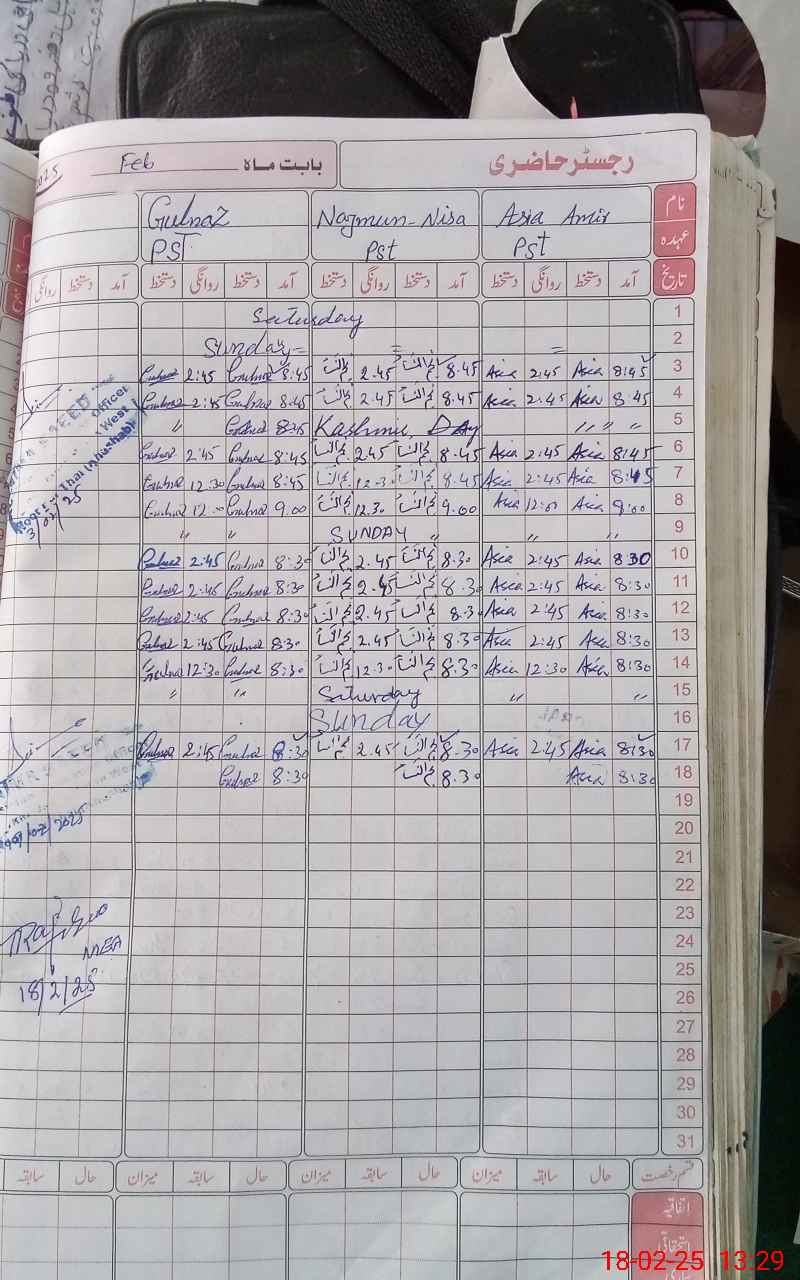 رجسٹر حاضری
بابت ماہ Feb
2025
نام Asia Amir Najmun-Nisa Gulnaz
عہدہ Pst Pst PST
تاریخ آمد دستخط روانگی دستخط آمد دستخط روانگی دستخط آمد دستخط روانگی دستخط آمد دستخط روانگی
1 Saturday
2 Sunday = = =
3 8:45 Asia 2:45 Asia 8.45 نجم النساء 2.45 نجم النساء 8:45 Gulnaz 2:45 Gulnaz
4 8:45 Asia 2:45 Asia 8.45 نجم النساء 2.45 نجم النساء 8:45 Gulnaz 2:45 Gulnaz
5 " " " Kashmir Day 8:45 Gulnaz "
6 8:45 Asia 2:45 Asia 8.45 نجم النساء 2.45 نجم النساء 8:45 Gulnaz 2:45 Gulnaz
7 8:45 Asia 2:45 Asia 8.45 نجم النساء 12.30 نجم النساء 8:45 Gulnaz 12:30 Gulnaz
8 9:00 Asia 12:00 Asia 9.00 نجم النساء 12.30 نجم النساء 9:00 Gulnaz 12:00 Gulnaz
9 " " " SUNDAY " "
10 8:30 Asia 2:45 Asia 8.30 نجم النساء 2.45 نجم النساء 8:30 Gulnaz 2:45 Gulnaz
11 8:30 Asia 2:45 Asia 8.30 نجم النساء 2.45 نجم النساء 8:30 Gulnaz 2:45 Gulnaz
12 8:30 Asia 2:45 Asia 8.30 نجم النساء 2.45 نجم النساء 8:30 Gulnaz 2:45 Gulnaz
13 8:30 Asia 2:45 Asia 8.30 نجم النساء 2.45 نجم النساء 8:30 Gulnaz 2:45 Gulnaz
14 8:30 Asia 12:30 Asia 8.30 نجم النساء 12.30 نجم النساء 8:30 Gulnaz 12:30 Gulnaz
15 " " Saturday " "
16 Sunday
17 8:30 Asia 2:45 Asia 8.30 نجم النساء 2.45 نجم النساء 8:30 Gulnaz 2:45 Gulnaz
18 8:30 Asia 8.30 نجم النساء 8:30 Gulnaz
19
20
21
22
23
24
25
26
27
28
29
30
31
Officer
West
3/02/25
02/2025
MEA
18/2/25
قسم رخصت حال سابقہ میزان حال سابقہ میزان حال سابقہ میزان حال سابقہ
اتفاقیہ
استحقاقی
18-02-25 13:29